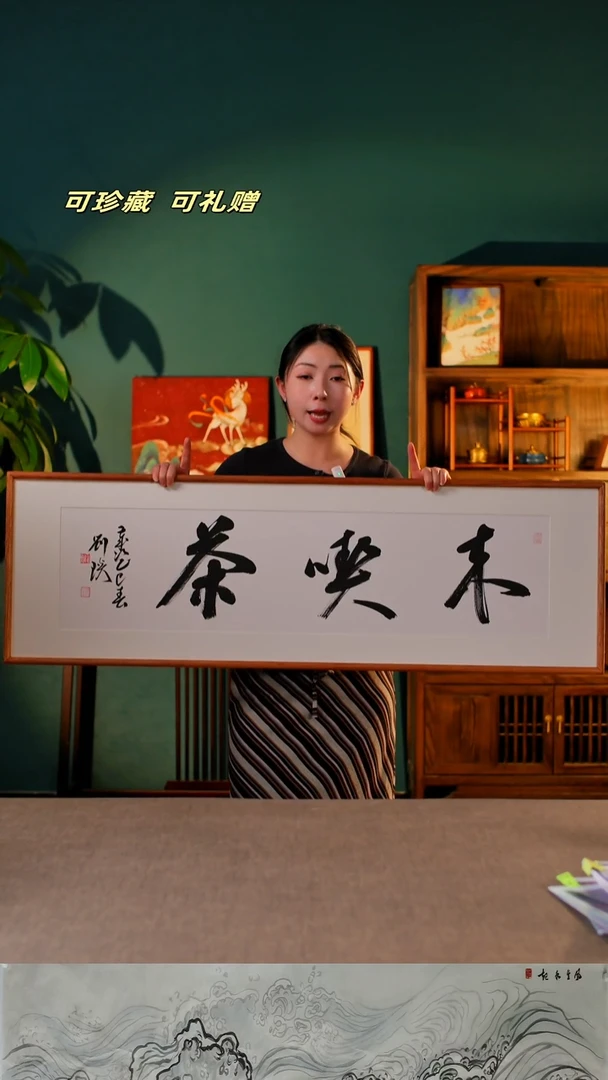 可珍藏 可礼赠
来喫茶
乙巳春